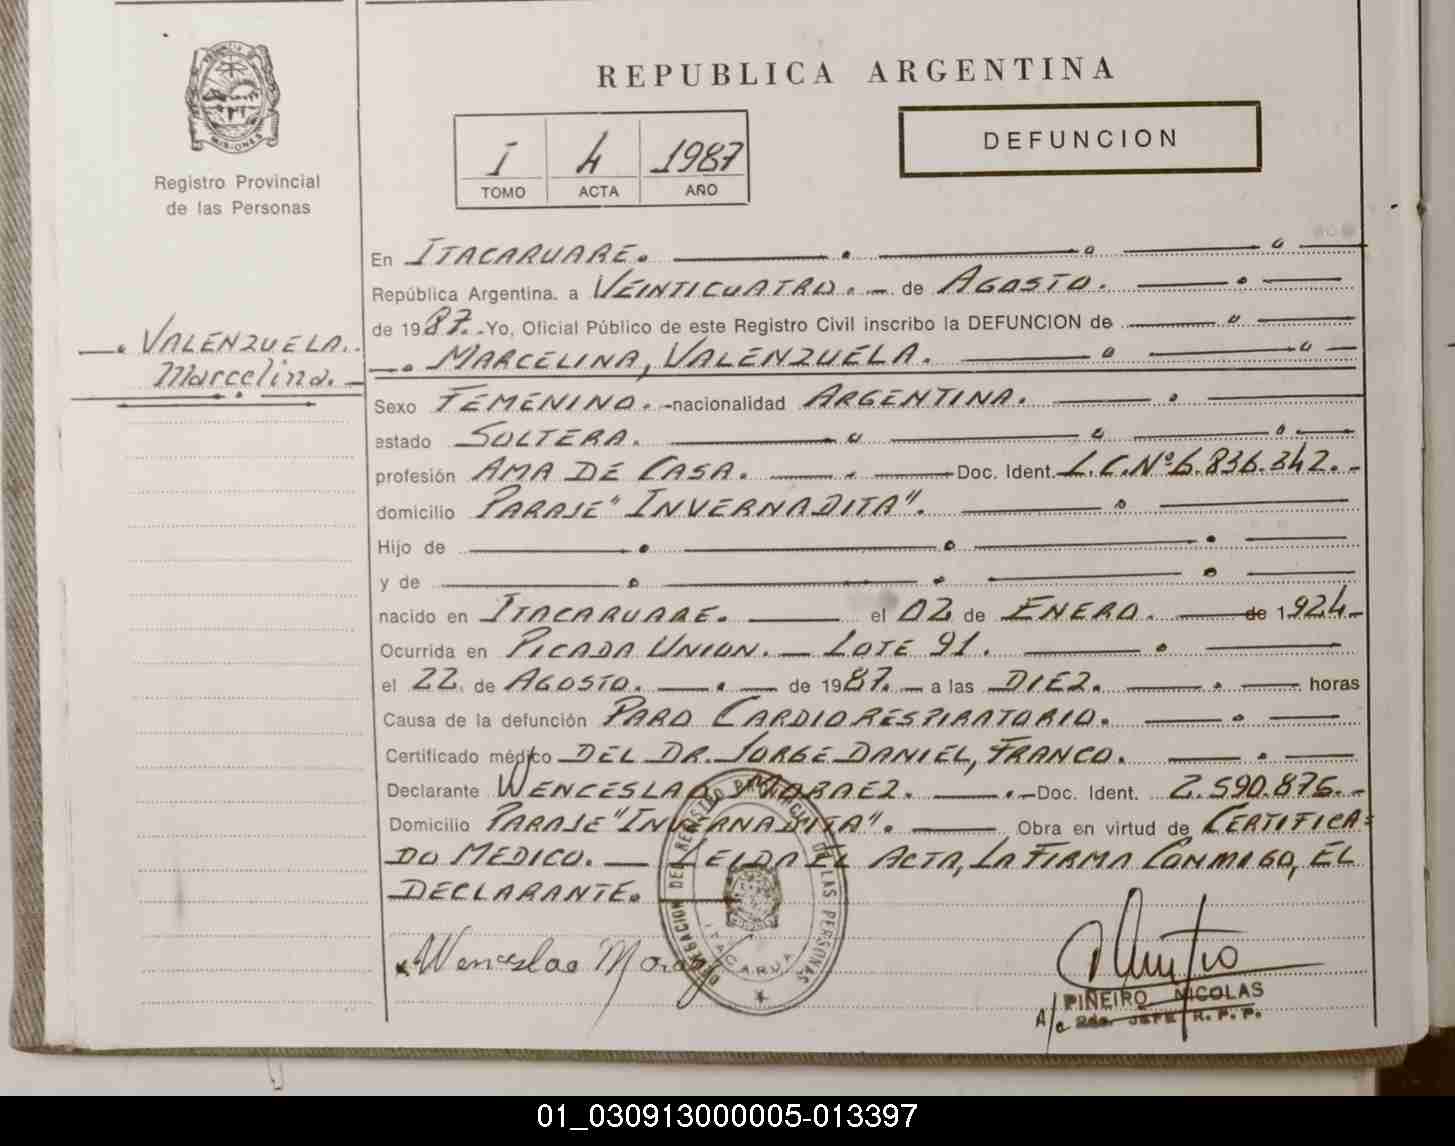 REPUBLICA ARGENTINA
PROVINCIA DE MISIONES
Registro Provincial
de las Personas
I 4 1987
TOMO ACTA AÑO
DEFUNCION
VALENZUELA.
Marcelina.
En ITACARUARE.
República Argentina. a VEINTICUATRO. de AGOSTO.
de 1987. Yo, Oficial Público de este Registro Civil inscribo la DEFUNCION de
MARCELINA, VALENZUELA.
Sexo FEMENINO. -nacionalidad ARGENTINA.
estado SOLTERA.
profesión AMA DE CASA. Doc. Ident. L.C.Nº 6.836.342.-
domicilio PARAJE "INVERNADITA".
Hijo de
y de
nacido en ITACARUARE. el 02 de ENERO. de 1.924.-
Ocurrida en PICADA UNION. — LOTE 91.
el 22. de AGOSTO. de 1987. a las DIEZ. horas
Causa de la defunción PARO CARDIORESPIRATORIO.
Certificado médico DEL DR. JORGE DANIEL, FRANCO.
Declarante WENCESLAO MORAEZ. Doc. Ident. 2.590.876.-
Domicilio PARAJE "INVERNADITA". Obra en virtud de CERTIFICA=
DO MEDICO. — LEIDA EL ACTA, LA FIRMA CONMIGO, EL
DECLARANTE.
DELEGACION DEL REGISTRO PROVINCIAL DE LAS PERSONAS
ITACARUA
Wenceslao Moraez
PIÑEIRO NICOLAS
A/c 2do. JEFE R. P. P.
01_030913000005-013397